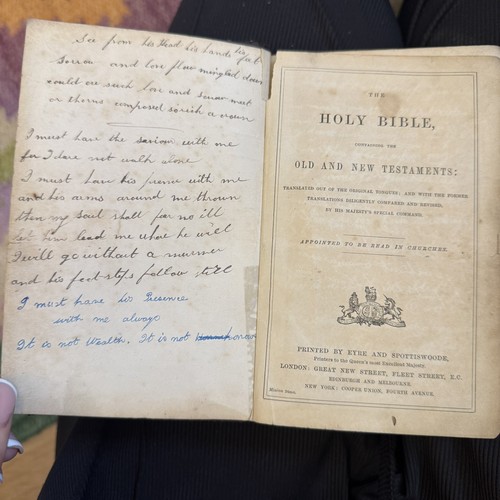 See from his Head his hands his feet
Sorrow and love flow mingled down
could ere such love and Sorrow meet
or thorns composed so rich a crown
I must have the saviour with me
for I dare not walk alone
I must have his presence with me
and his arms around me thrown
then my Soul shall fear no ill
let him lead me where he will
I will go without a murmer
and his foot-steps follow still
I must have his Presence
with me always
It is not Wealth. It is not
THE
HOLY BIBLE,
CONTAINING THE
OLD AND NEW TESTAMENTS:
TRANSLATED OUT OF THE ORIGINAL TONGUES; AND WITH THE FORMER
TRANSLATIONS DILIGENTLY COMPARED AND REVISED,
BY HIS MAJESTY'S SPECIAL COMMAND.
APPOINTED TO BE READ IN CHURCHES.
PRINTED BY EYRE AND SPOTTISWOODE,
Printers to the Queen's most Excellent Majesty.
LONDON: GREAT NEW STREET, FLEET STREET, E.C.
EDINBURGH AND MELBOURNE.
NEW YORK: COOPER UNION, FOURTH AVENUE.